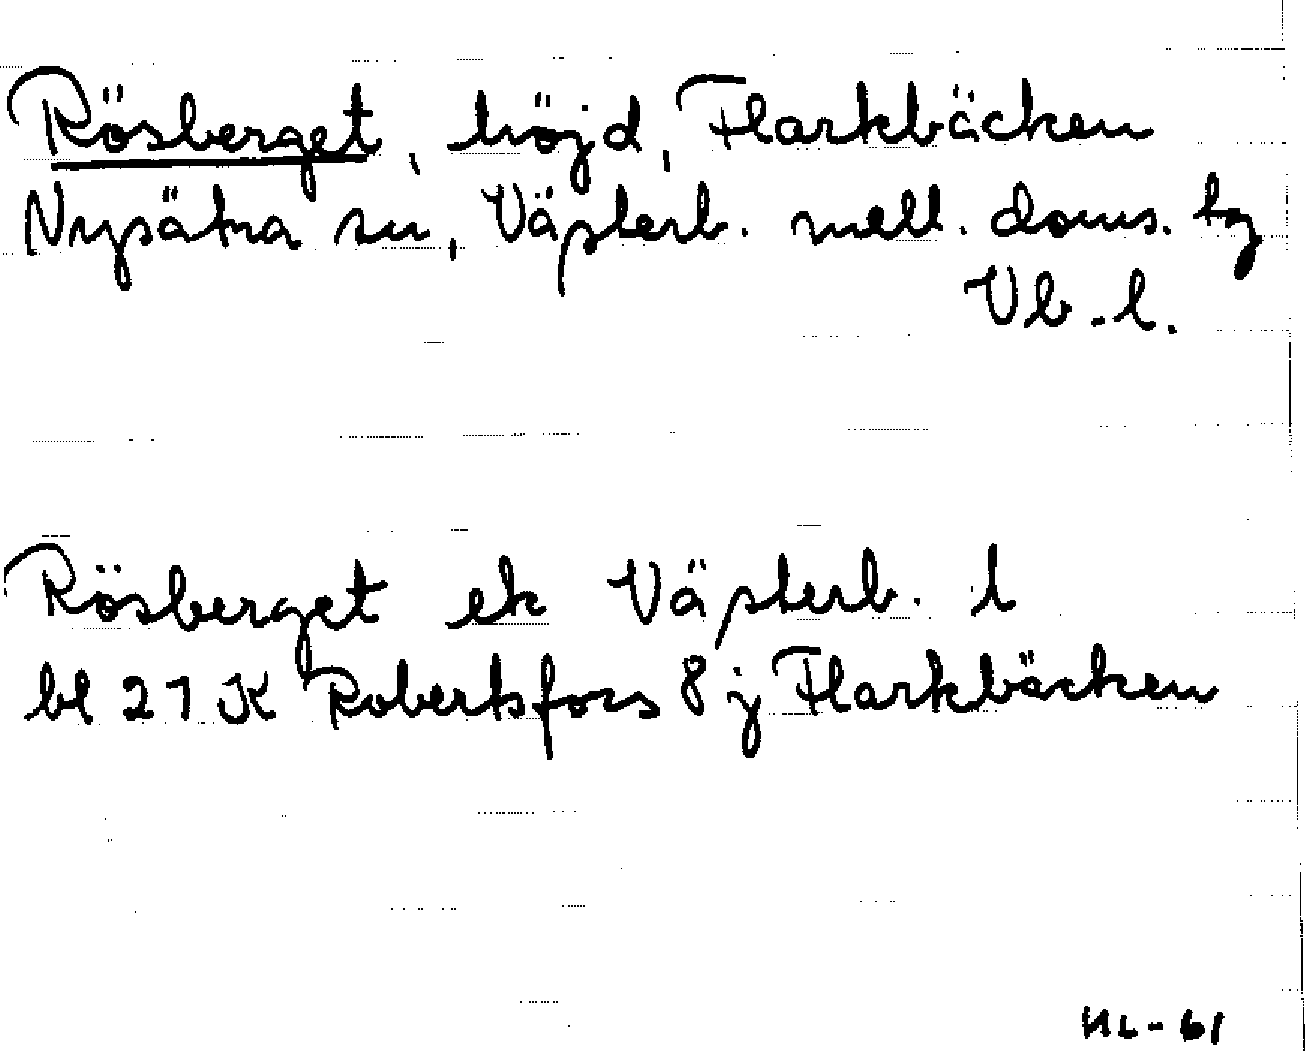 Rösberget, höjd, Flarkbäcken
Nysätra sn, Västerb. mell. doms. tg
Vb.l.
Rösberget ek Västerb. l
bl 21 K Robertsfors 8 j Flarkbäcken
HL-61